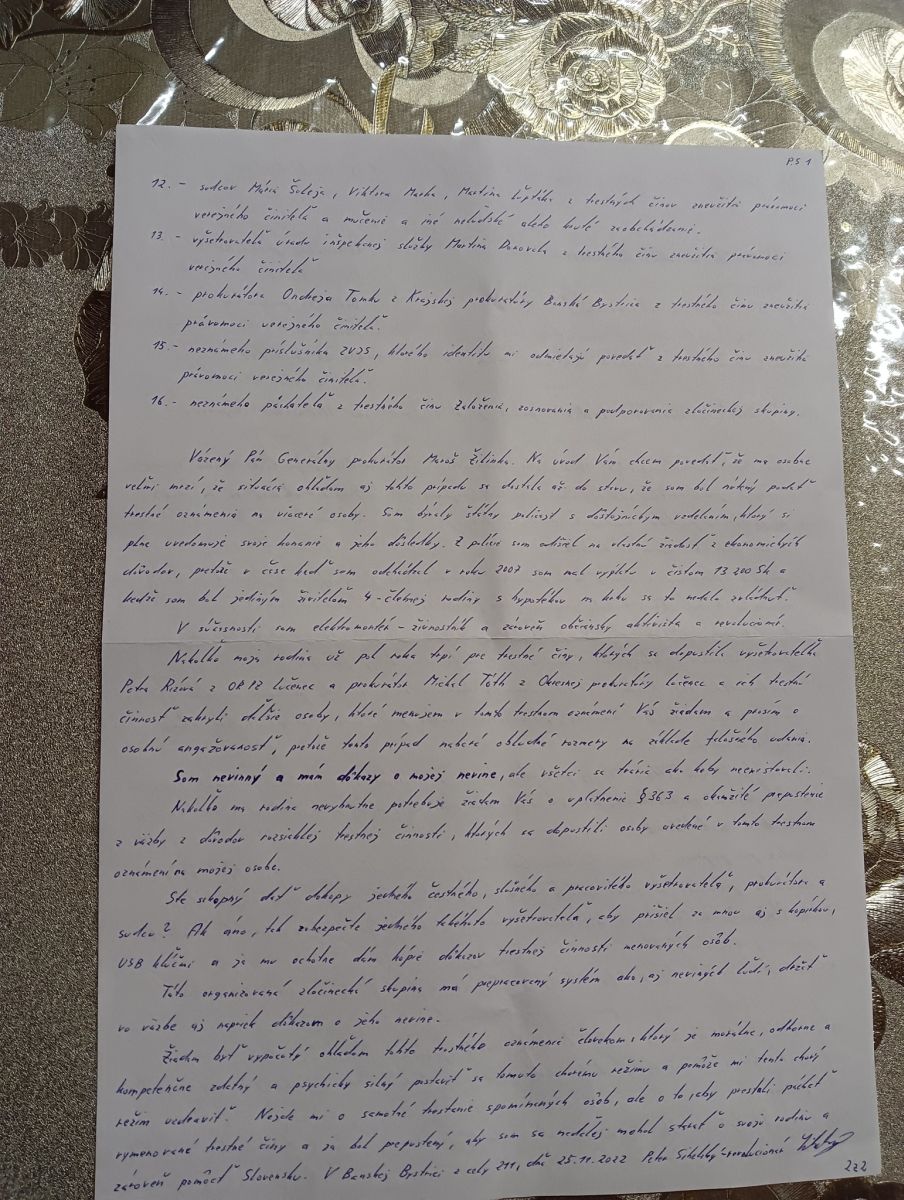 P.S 1
12. - sudcov Mária Šuleja, Viktora Marka, Martina Ľupťáka z trestných činov zneužitia právomoci
verejného činiteľa a mučenie a iné neľudské alebo kruté zaobchádzanie.
13. - vyšetrovateľa úradu inšpekčnej služby Martina z trestného činu zneužitia právomoci
verejného činiteľa
14. - prokurátora Ondreja Tomku z Krajskej prokuratúry Banská Bystrica z trestného činu zneužitia
právomoci verejného činiteľa.
15. - neznámeho príslušníka ZVJS, ktorého identitu mi odmietajú povedať z trestného činu zneužitia
právomoci verejného činiteľa.
16. - neznámeho páchateľa z trestného činu založenia, zosnovania a podporovania zločineckej skupiny.
Vážený Pán Generálny prokurátor Maroš Žilinka. Na úvod Vám chcem povedať, že ma osobne
veľmi mrzí, že situácia ohľadom aj tohto prípadu sa dostala až do stavu, že som bol nútený podať
trestné oznámenia na viaceré osoby. Som bývalý štátny policajt s dôstojníckym vzdelaním, ktorý si
plne uvedomuje svoje konanie a jeho dôsledky. Z polície som odišiel na vlastnú žiadosť z ekonomických
dôvodov, pretože v čase keď som odchádzal v roku 2007 som mal výplatu v čistom 13 200 Sk a
keďže som bol jediným živiteľom 4-člennej rodiny s hypotékou na krku sa to nedalo zvládnuť.
V súčasnosti som elektromontér - živnostník a zároveň občiansky aktivista a revolucionár.
Nakoľko moja rodina už pol roka trpí pre trestné činy, ktorých sa dopustila vyšetrovateľka
Petra Rízová z OR PZ Lučenec a prokurátor Michal Tóth z Okresnej prokuratúry Lučenec a ich trestnú
činnosť zakryli ďalšie osoby, ktoré menujem v tomto trestnom oznámení Vás žiadam a prosím o
osobnú angažovanosť, pretože tento prípad naberá obludné rozmery na základe falošného udania.
Som nevinný a mám dôkazy o mojej nevine, ale všetci sa tvária ako keby neexistovali.
Nakoľko ma rodina nevyhnutne potrebuje žiadam Vás o uplatnenie §363 a okamžité prepustenie
z väzby z dôvodov rozsiahlej trestnej činnosti, ktorých sa dopustili osoby uvedené v tomto trestnom
oznámení na mojej osobe.
Ste schopný dať dokopy jedného čestného, slušného a pracovitého vyšetrovateľa, prokurátora a
sudcu? Ak áno, tak zabezpečte jedného takéhoto vyšetrovateľa, aby prišiel za mnou aj s kopírkou,
USB kľúčmi a ja mu ochotne dám kópie dôkazov trestnej činnosti menovaných osôb.
Táto organizovaná zločinecká skupina má prepracovaný systém ako, aj nevinných ľudí, držať
vo väzbe aj napriek dôkazom o jeho nevine.
Žiadam byť vypočutý ohľadom tohto trestného oznámenia človekom, ktorý je morálne, odborne a
kompetenčne zdatný a psychicky silný postaviť sa tomuto chorému režimu a pomôže mi tento chorý
režim uzdraviť. Nejde mi o samotné trestanie spomínaných osôb, ale o to, aby prestali páchať
vymenované trestné činy a ja bol prepustený, aby som sa naďalej mohol starať o svoju rodinu a
zároveň pomôcť Slovensku. V Banskej Bystrici z cely 211, dňa 25.11.2022 Peter - revolucionár
2z2